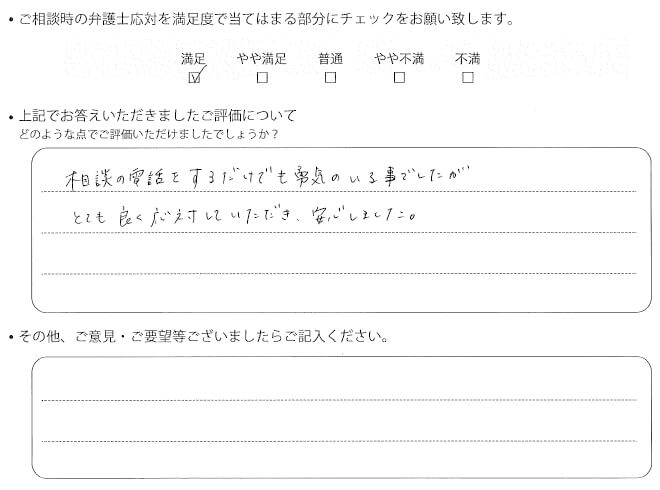 • ご相談時の弁護士応対を満足度で当てはまる部分にチェックをお願い致します。
満足 やや満足 普通 やや不満 不満
☑ □ □ □ □
• 上記でお答えいただきましたご評価について
どのような点でご評価いただけましたでしょうか？
相談の電話をするだけでも勇気のいる事でしたが
とても良く応対していただき、安心しました。
• その他、ご意見・ご要望等ございましたらご記入ください。